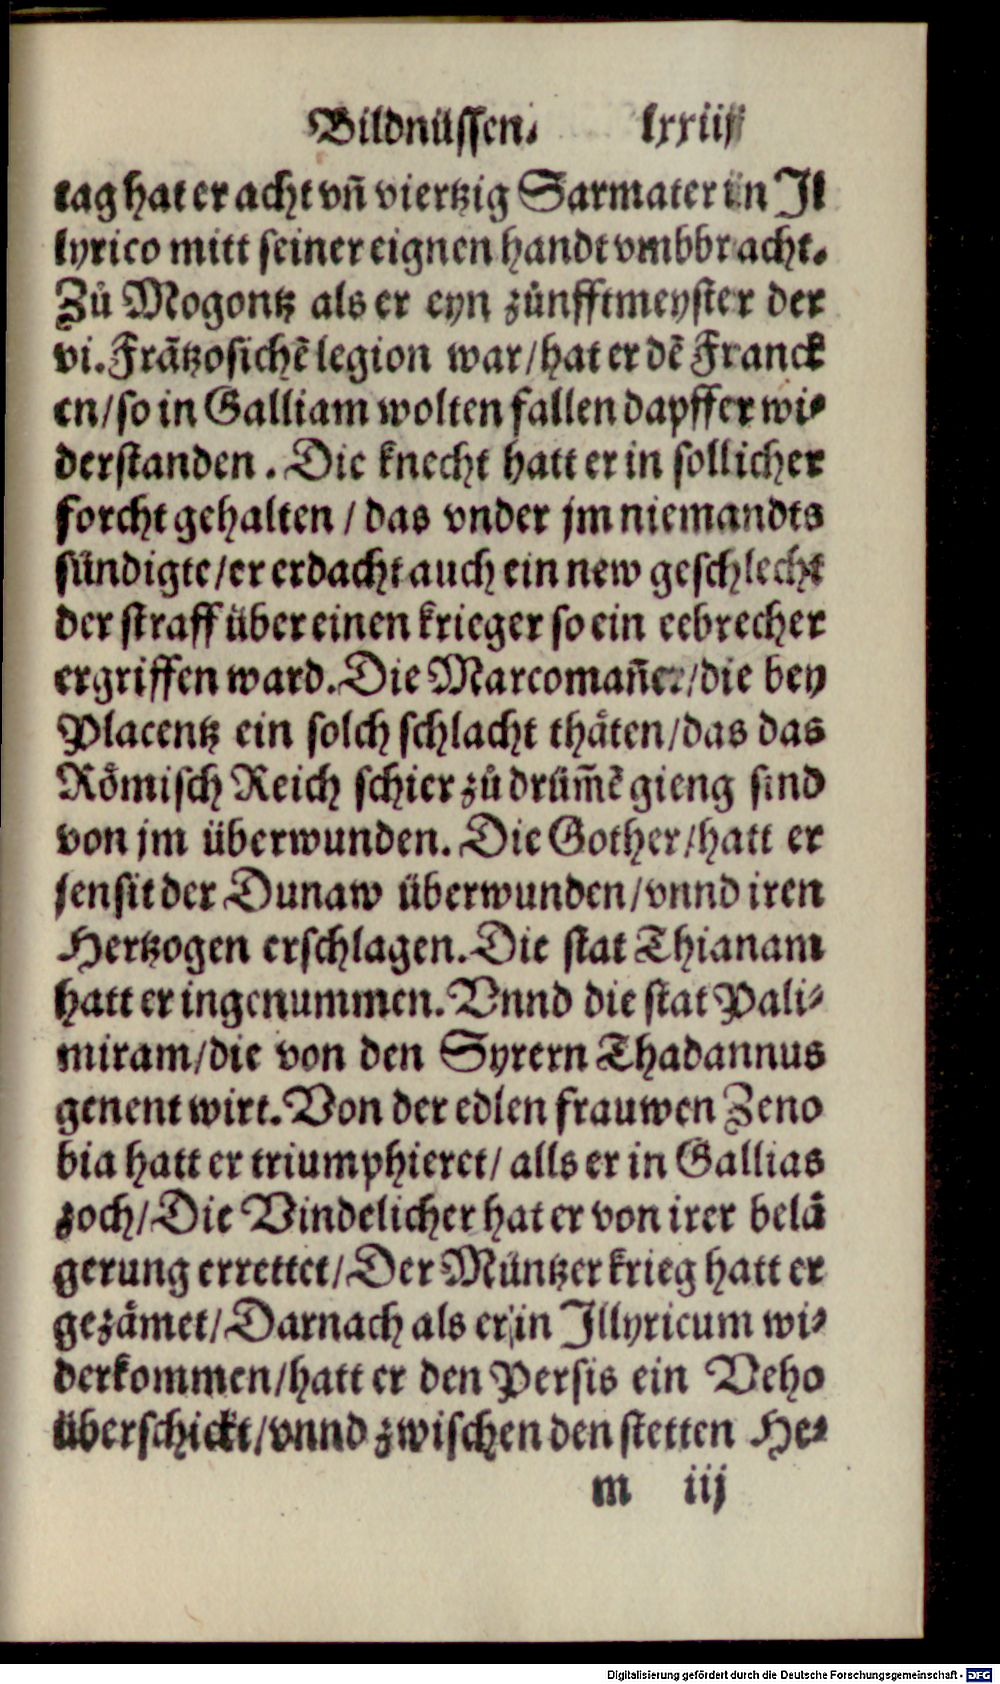 Bildnüssen. lxxiij
tag hat er acht vñ viertzig Sarmater in Jl
lyrico mitt seiner eignen handt vmbbracht.
Zů Mogontz als er eyn zünfftmeyster der
vi. Frãtzosichẽ legion war / hat er dẽ Franck
en / so in Galliam wolten fallen dapffer wi⸗
derstanden. Die knecht hatt er in sollicher
forcht gehalten / das vnder jm niemandts
sündigte / er erdacht auch ein new geschlecht
der straff über einen krieger so ein eebrecher
ergriffen ward. Die Marcomañer / die bey
Placentz ein solch schlacht thäten / das das
Römisch Reich schier zů drüm̃ẽ gieng sind
von jm überwunden. Die Gother / hatt er
jensit der Dunaw überwunden / vnnd iren
Hertzogen erschlagen. Die stat Thianam
hatt er ingenummen. Vnnd die stat Pali⸗
miram / die von den Syrern Thadannus
genent wirt. Von der edlen frauwen Zeno
bia hatt er triumphieret / alls er in Gallias
zoch / Die Vindelicher hat er von irer belä
gerung errettet / Der Müntzer krieg hatt er
gezämet / Darnach als er in Jllyricum wi⸗
derkommen / hatt er den Persis ein Veho
überschickt / vnnd zwischen den stetten He⸗
m iij
Digitalisierung gefördert durch die Deutsche Forschungsgemeinschaft - DFG